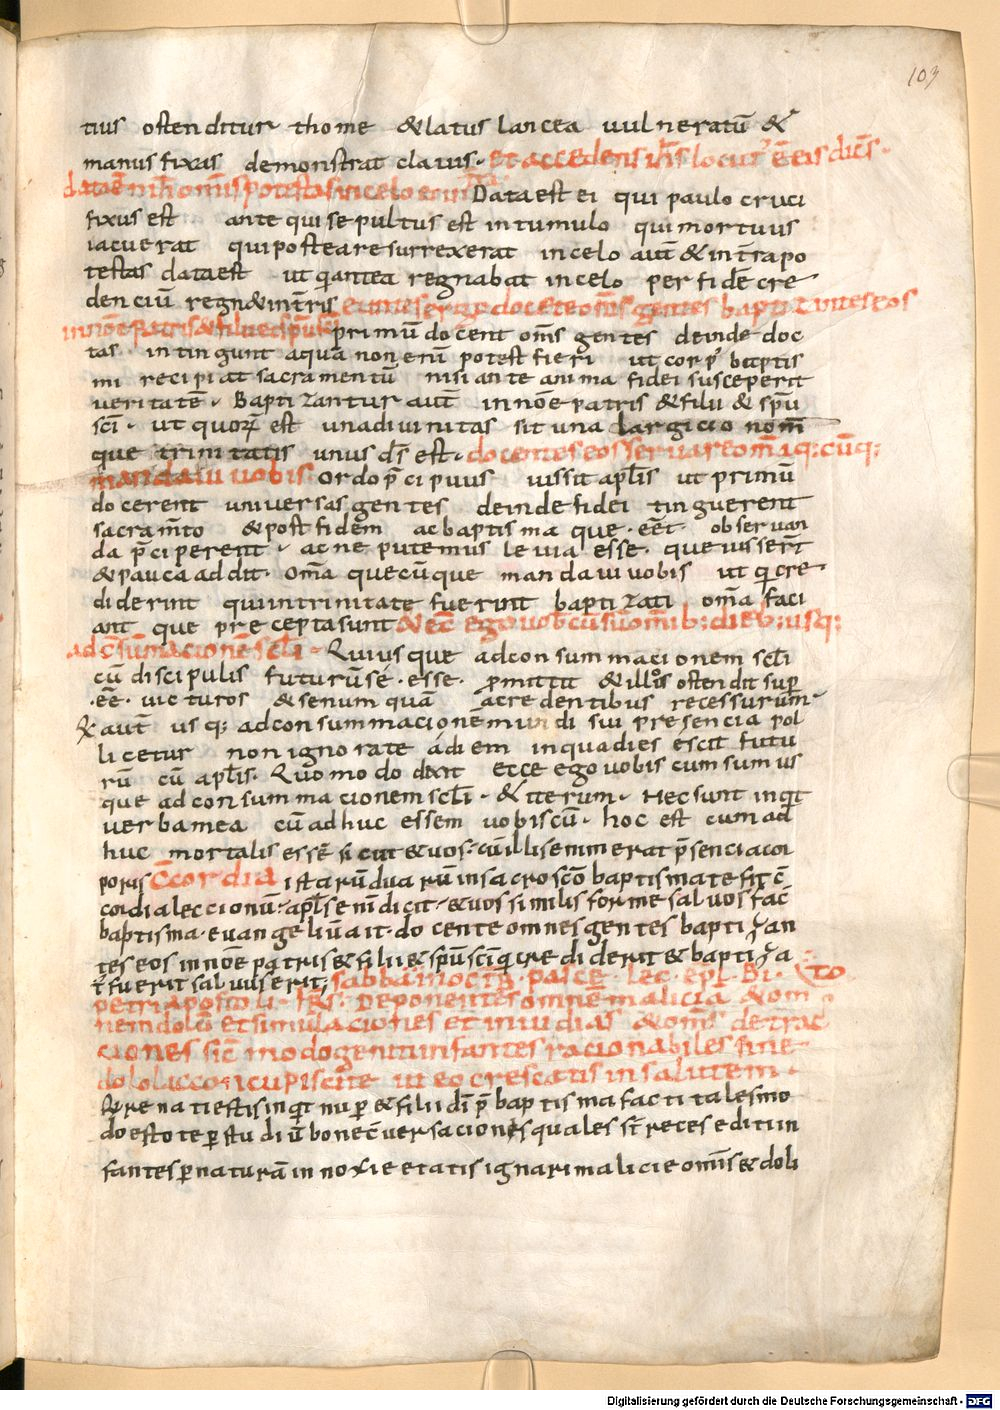 103
tius ostenditur thome & latus lancea uulneratū &
manus fixas demonstrat clauis. Et accedens ih̄s locut᾽ ē eis dicēs.
data ē mihi om̄is potestas in celo et in Data est ei qui paulo cruci
fixus est ante qui sepultus est in tumulo qui mortuus
iacuerat qui postea resurrexerat in celo aut̄ & in t̄ra po
testas data est ut q̇ antea regnabat in celo per fidē cre
denciū regn& in t̄ris Euntes ergo docete om̄s gentes baptizantes eos
in nōe patris & filii et sp̄u sc̄i primū docent om̄s gentes deinde doc
tas intingunt aqua non enī potest fieri ut corp᾽ baptis
mi recipiat sacramentū nisi ante anima fidei susceperit
ueritatē. Baptizantur aut̄ in nōe patris & filii & sp̄u
sc̄i. ut quorū est una diuinitas sit una largicio nom̄
que trinitatis unus ds̄ est. docentes eos seruare om̄ia q; cūq;
mandaui uobis. Ordo p̄cipuus iussit apl̄is ut primū
docerent uniuersas gentes deinde fidei tinguerent
sacram̄to & post fidem ac baptisma que. eēt obseruan
da p̄ciperent. ac ne putemus leuia esse. que iusser̄t
& pauca addit. Om̄a quecūque mandaui uobis ut q̇ cre
diderint qui in trinitate fuerint baptizati om̄a faci
ant que precepta sunt & ecc̄ ego uob̄cū sū om̄ib; dieb; usq;
ad cōsūmacionē sc̄li. Qui usque ad consummacionem sc̄li
cū discipulis futurū sē. esse. promittit & illos ostendit sup
.eē. uicturos & se numquā a credentibus recessurum
& aut̄ usq; ad consummacionē mundi sui presencia pol
licetur non ignorate ādiem in qua dies ēscit futu
rū cū apl̄is. Quomodo dixit ecce ego uobiscum sum us
que ad consummacionem sc̄li. & iterum. Hec sunt inq̇t
uerba mea cū adhuc essem uobiscū. hoc est cum ad
huc mortalis essē sicut & uos. cū illis enim erat p̄sencia cor
poris Cōcordia istarū duarū in sacrosc̄o baptismate fit cō
cordia leccionū. apl̄s eni dicit. & uos similis forme saluos fac̄
baptisma. euangeliū ait. docente omnes gentes baptizan
tes eos in nōe patris & filii & sp̄u sc̄i q̇ crediderit & baptiza
t᾽ fuerit saluus erit; Sabbato in oct᾽ pasce. Lec. epl̄. Bi. to
petri apostoli. Fr̄s. Deponentes omnēm malicia & om
nem dolū et simulaciones et inuidias & om̄s detrac
ciones sic̄ modo geniti infantes racionabiles sine
dolo lac concupiscite ut eo crescatis in salutem.
Q̇ renati estis inquit nup̄ & filii dī p̄ baptisma facti tales mo
do estote p̄ studiū bone cōuersaciones quales st̄ reces editi in
fantes p̄ naturā innoxie etatis ignari malicie om̄is & doli
Digitalisierung gefördert durch die Deutsche Forschungsgemeinschaft - DFG